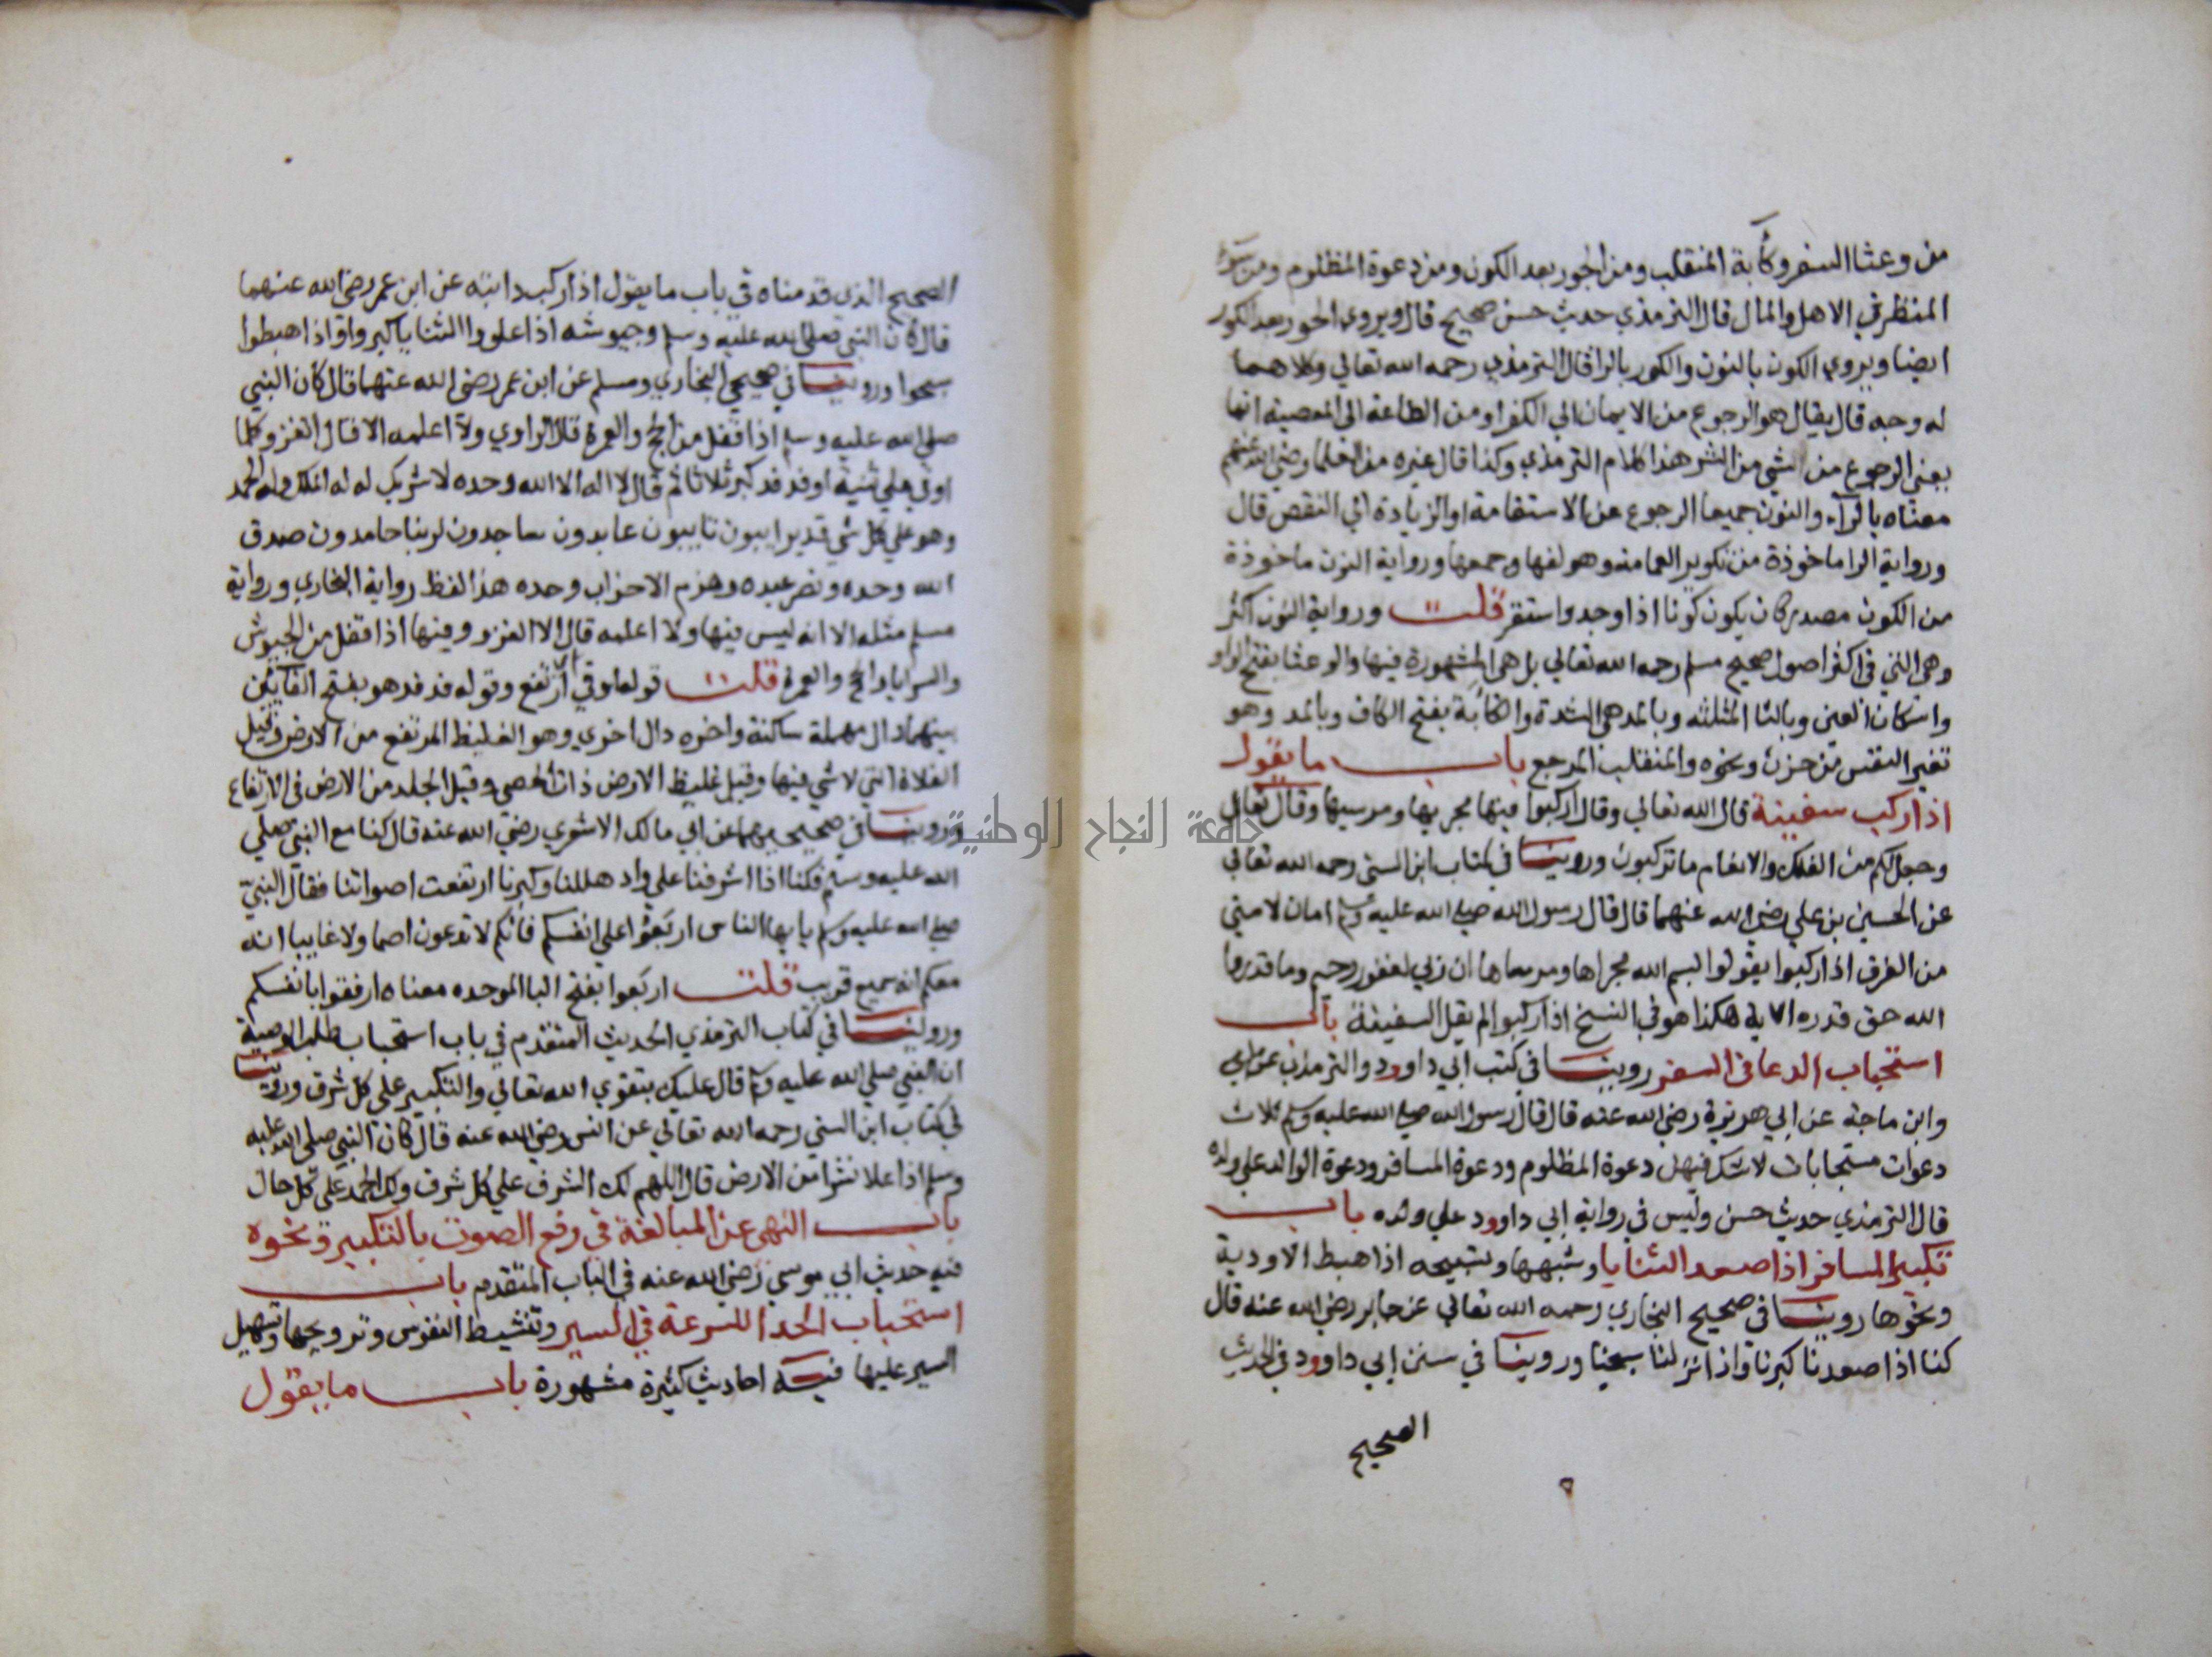 من وعثا السفر وكآبة المنقلب ومن الحور بعد الكون ومن دعوة المظلوم ومن سوء
المنظر في الاهل والمال قال الترمذي حديث حسن صحيح قال ويروي الحور بعد الكور
ايضا ويروي الكون بالنون والكور بالرا قال الترمذي رحمه الله تعالي وكلاهما
له وجه قال يقال هو الرجوع من الايمان الي الكفر او من الطاعة الي المعصية انما
يعني الرجوع من الشي من الشر هذا كلام الترمذي وكذا قال غيره من العلما رضي الله عنهم
معناه بالرآء والنون جميعا الرجوع عن الاستقامة او الزيادة الي النقص قال
ورواية الرا ماخوذة من تكوير العمامة وهو لفها وجمعها ورواية النون ماخوذة
من الكون مصدر كان يكون كونا اذا وجد واستقر قلت ورواية النون اكثر
وهي التي في اكثر اصول صحيح مسلم رحمه الله تعالي بل هي المشهورة فيها والوعثا بفتح الواو
واسكان العين وبالثا المثلثه وبالمد هي الشدة والكابة بفتح الكاف وبالمد وهو
تغير النفس من حزن ونحوه والمنقلب المرجع باب ما يقول
اذا ركب سفينة قال الله تعالي وقال اركبوا فيها مجريها ومرسيها وقال تعالي
وجعل لكم من الفلك والانعام ما تركبون وروينا في كتاب ابن السني رحمه الله تعالي
عن الحسين بن علي رضي الله عنهما قال قال رسول الله صلي الله عليه وسلم امان لامتي
من الغرق اذا ركبوا يقولوا بسم الله مجراها ومرساها ان ربي لغفور رحيم وما قدروا
الله حق قدره الاية هكذا هو في النسخ اذا ركبوا لم يقل السفينة باب
استحباب الدعا في السفر روينا في كتب ابي داوود والترمذي
وابن ماجة عن ابي هريرة رضي الله عنه قال قال رسول الله صلي الله عليه وسلم ثلاث
دعوات مستجابات لا شك فيهن دعوة المظلوم ودعوة المسافر ودعوة الوالد علي ولده
قال الترمذي حديث حسن وليس في رواية ابي داوود علي ولده باب
تكبير المسافر اذا صعد الثنايا وشبهها وتسبيحه اذا هبط الاودية
ونحوها روينا في صحيح البخاري رحمه الله تعالي عن جابر رضي الله عنه قال
كنا اذا صعدنا كبرنا واذا نزلنا سبحنا وروينا في سنن ابي داوود في الحديث
الصحيح
الصحيح الذي قدمناه في باب ما يقول اذا ركب دابته عن ابن عمر رضي الله عنهما
قال كان النبي صلي الله عليه وسلم وجيوشه اذا علوا الثنايا كبروا واذا هبطوا
سبحوا وروينا في صحيحي البخاري ومسلم عن ابن عمر رضي الله عنهما قال كان النبي
صلي الله عليه وسلم اذا قفل من الحج والعمرة قال الراوي ولا اعلمه الا قال الغزو كلما
اوفي علي ثنية او فدفد كبر ثلاثا ثم قال لا اله الا الله وحده لا شريك له له الملك وله الحمد
وهو علي كل شي قدير ايبون تايبون عابدون ساجدون لربنا حامدون صدق
الله وحده ونصر عبده وهزم الاحزاب وحده هذا لفظ رواية البخاري ورواية
مسلم مثله الا انه ليس فيها ولا اعلمه قال الا الغزو وفيها اذا قفل من الجيوش
والسرايا والحج والعمرة قلت قوله اوفي اي ارتفع وقوله فدفد هو بفتح الفايين
بينهما دال مهملة ساكنة واخره دال اخري وهو الغليظ المرتفع من الارض وقيل
الفلاة التي لا شي فيها وقيل غليظ الارض ذات الحصي وقيل الجلد من الارض في الارتفاع
وروينا في صحيحيهما عن ابي مالك الاشعري رضي الله عنه قال كنا مع النبي صلي
الله عليه وسلم فكنا اذا اشرفنا علي واد هللنا وكبرنا ارتفعت اصواتنا فقال النبي
صلي الله عليه وسلم يا يها الناس اربعوا علي انفسكم فانكم لا تدعون اصما ولا غايبا انه
معكم انه سميع قريب قلت اربعوا بفتح البا الموحده معناه ارفقوا بانفسكم
وروينا في كتاب الترمذي الحديث المتقدم في باب استحباب طلب الوصية
ان النبي صلي الله عليه وسلم قال عليك بتقوي الله تعالي والتكبير علي كل شرف وروينا
في كتاب ابن السني رحمه الله تعالي عن انس رضي الله عنه قال كان النبي صلي الله عليه
وسلم اذا علا نشزا من الارض قال اللهم لك الشرف علي كل شرف ولك الحمد علي كل حال
باب النهي عن المبالغة في رفع الصوت بالتكبير ونحوه
فيه حديث ابي موسي رضي الله عنه في الباب المتقدم باب
استحباب الحدا للسرعة في السير وتنشيط النفوس وترويحها وتسهيل
السير عليها فيه احاديث كثيرة مشهورة باب ما يقول
جامعة النجاح الوطنية